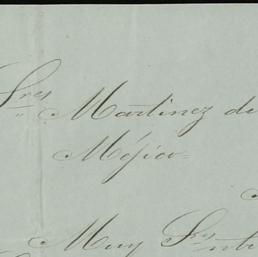 Sres Martinez de
Méjico=
Muy Sres